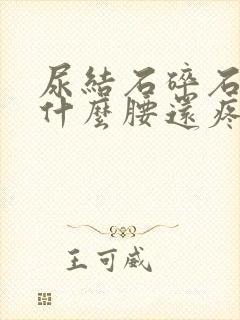 尿結石碎石
什麼腰還疼
王可威